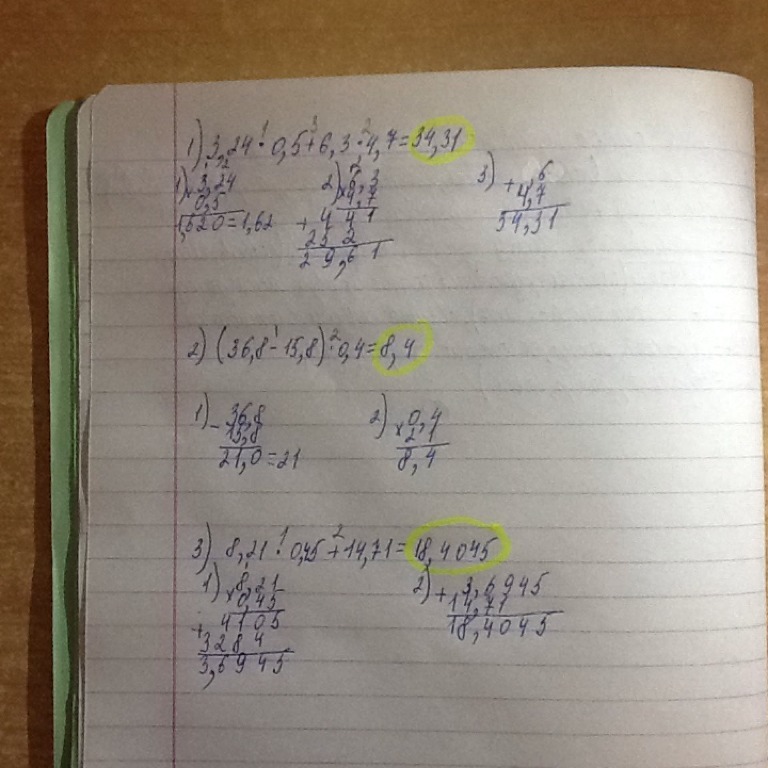 1) 3,24 · 0,5 + 6,3 · 4,7 = 34,31
1) × 3,24
0,5
1,620 = 1,62
2) × 6,3
4,7
+ 4 4 1
25 2
2 9,6 1
3) + ,6
4,7
34,31
2) (36,8 - 15,8) · 0,4 = 8,4
1) - 36,8
15,8
21,0 = 21
2) × 0,4
21
8,4
3) 8,21 · 0,45 + 14,71 = 18,4045
1) × 8,21
0,45
+ 4105
3284
3,6945
2) + 3,6945
14,71
18,4045